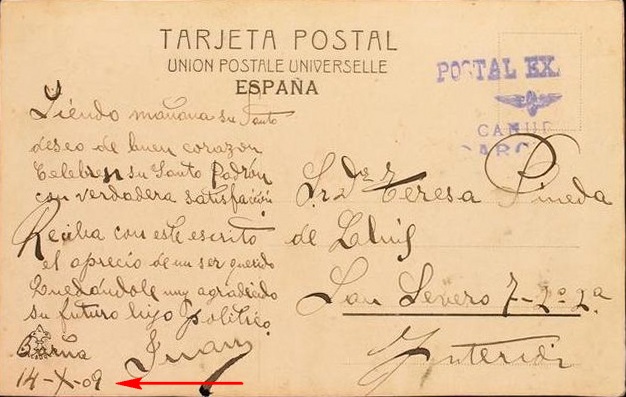 TARJETA POSTAL
UNION POSTALE UNIVERSELLE
ESPAÑA
POSTAL EX
Siendo mañana su Santo
deseo de buen corazon
celebren su Santo Padrón
con verdadera satisfacion.
Reciba con este escrito
el aprecio de un ser querido
Quedándole muy agradecido
su futuro hijo politico.
Juan
Barña
14-X-09
Sra Da Teresa Pineda
de Lluis
San Severo 7-2º-2ª
Interior